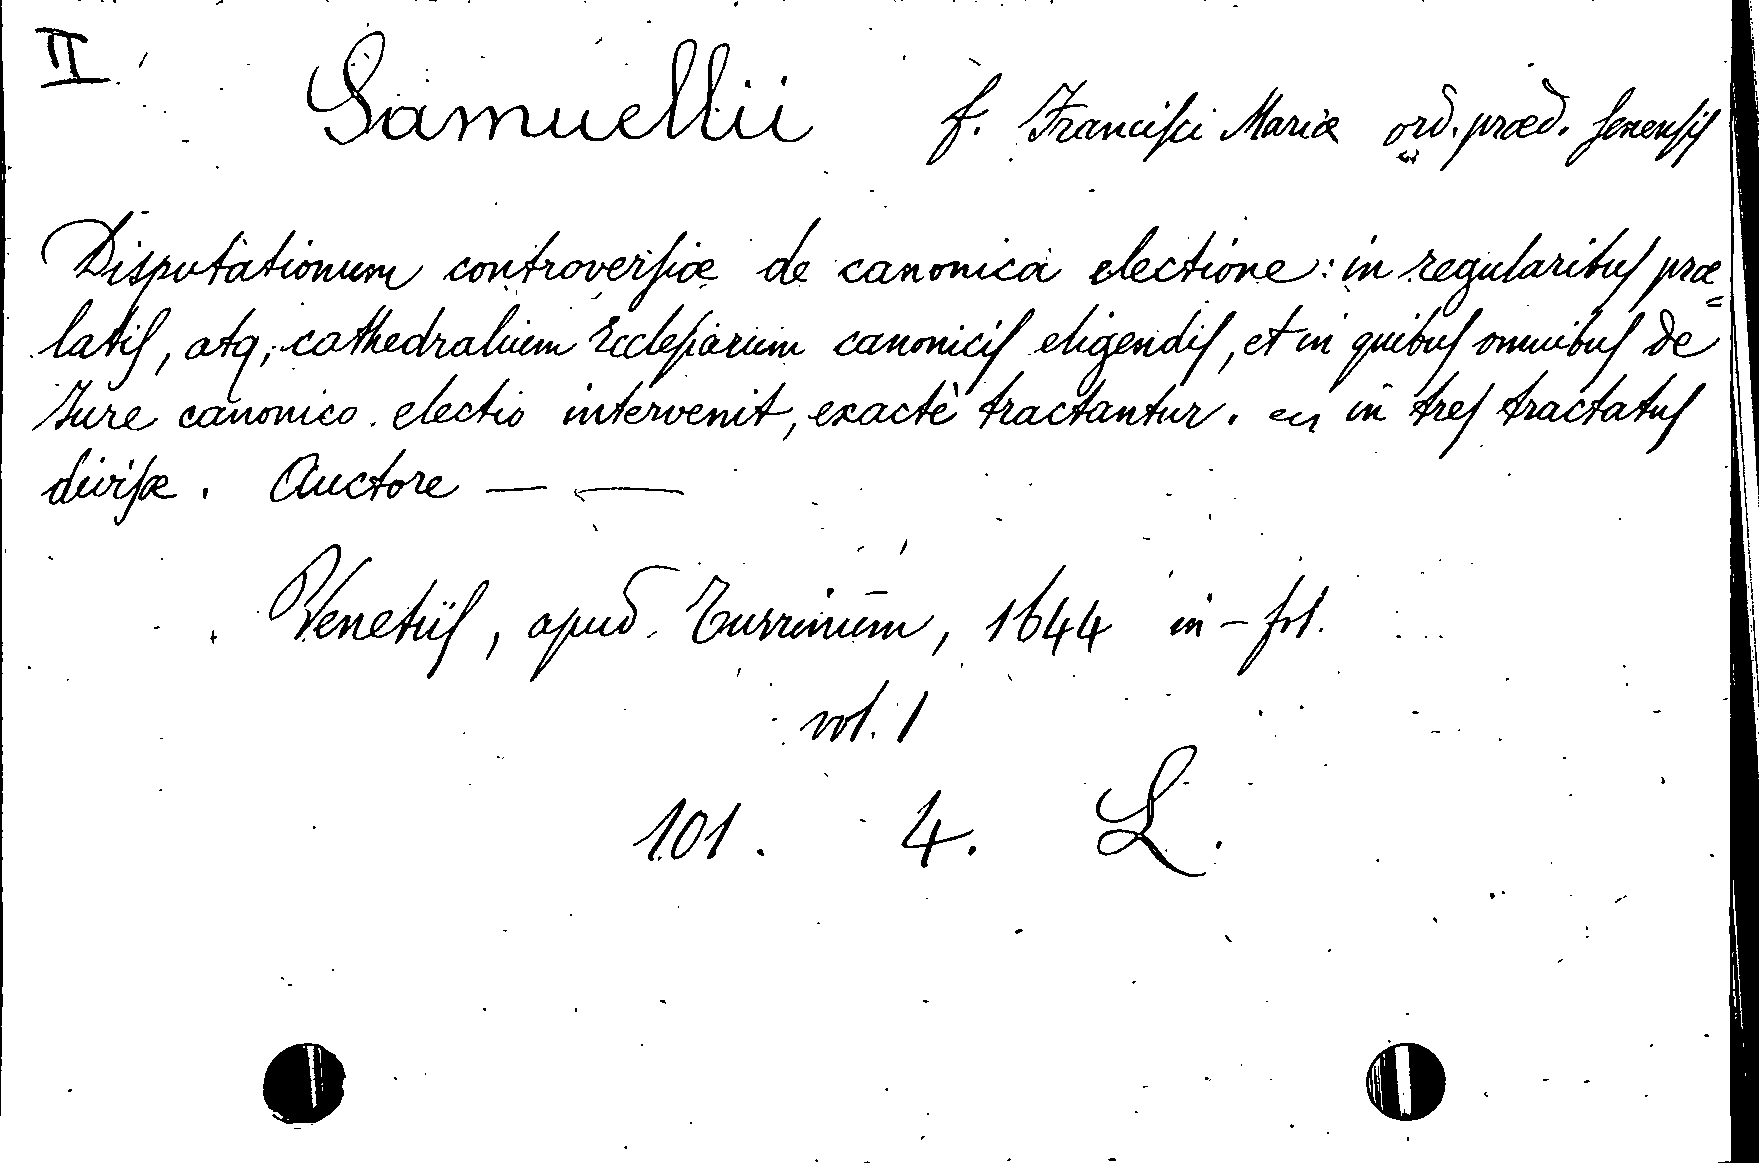 II
Samuellii f. Franciſci Mariæ ord. præd. ſenenſiſ
Disputationum controverſiæ de canonica electione: in regularibuſ præ=
latiſ, atq; cathedralium Eccleſiarum canoniciſ eligendiſ, et in quibuſ omnibuſ de
Jure canonico electio intervenit, exactè tractantur. in treſ tractatuſ
diviſæ. Auctore — —
Venetiiſ, apud Turrinum, 1644 in-fol.
vol. 1
101. 4. L.